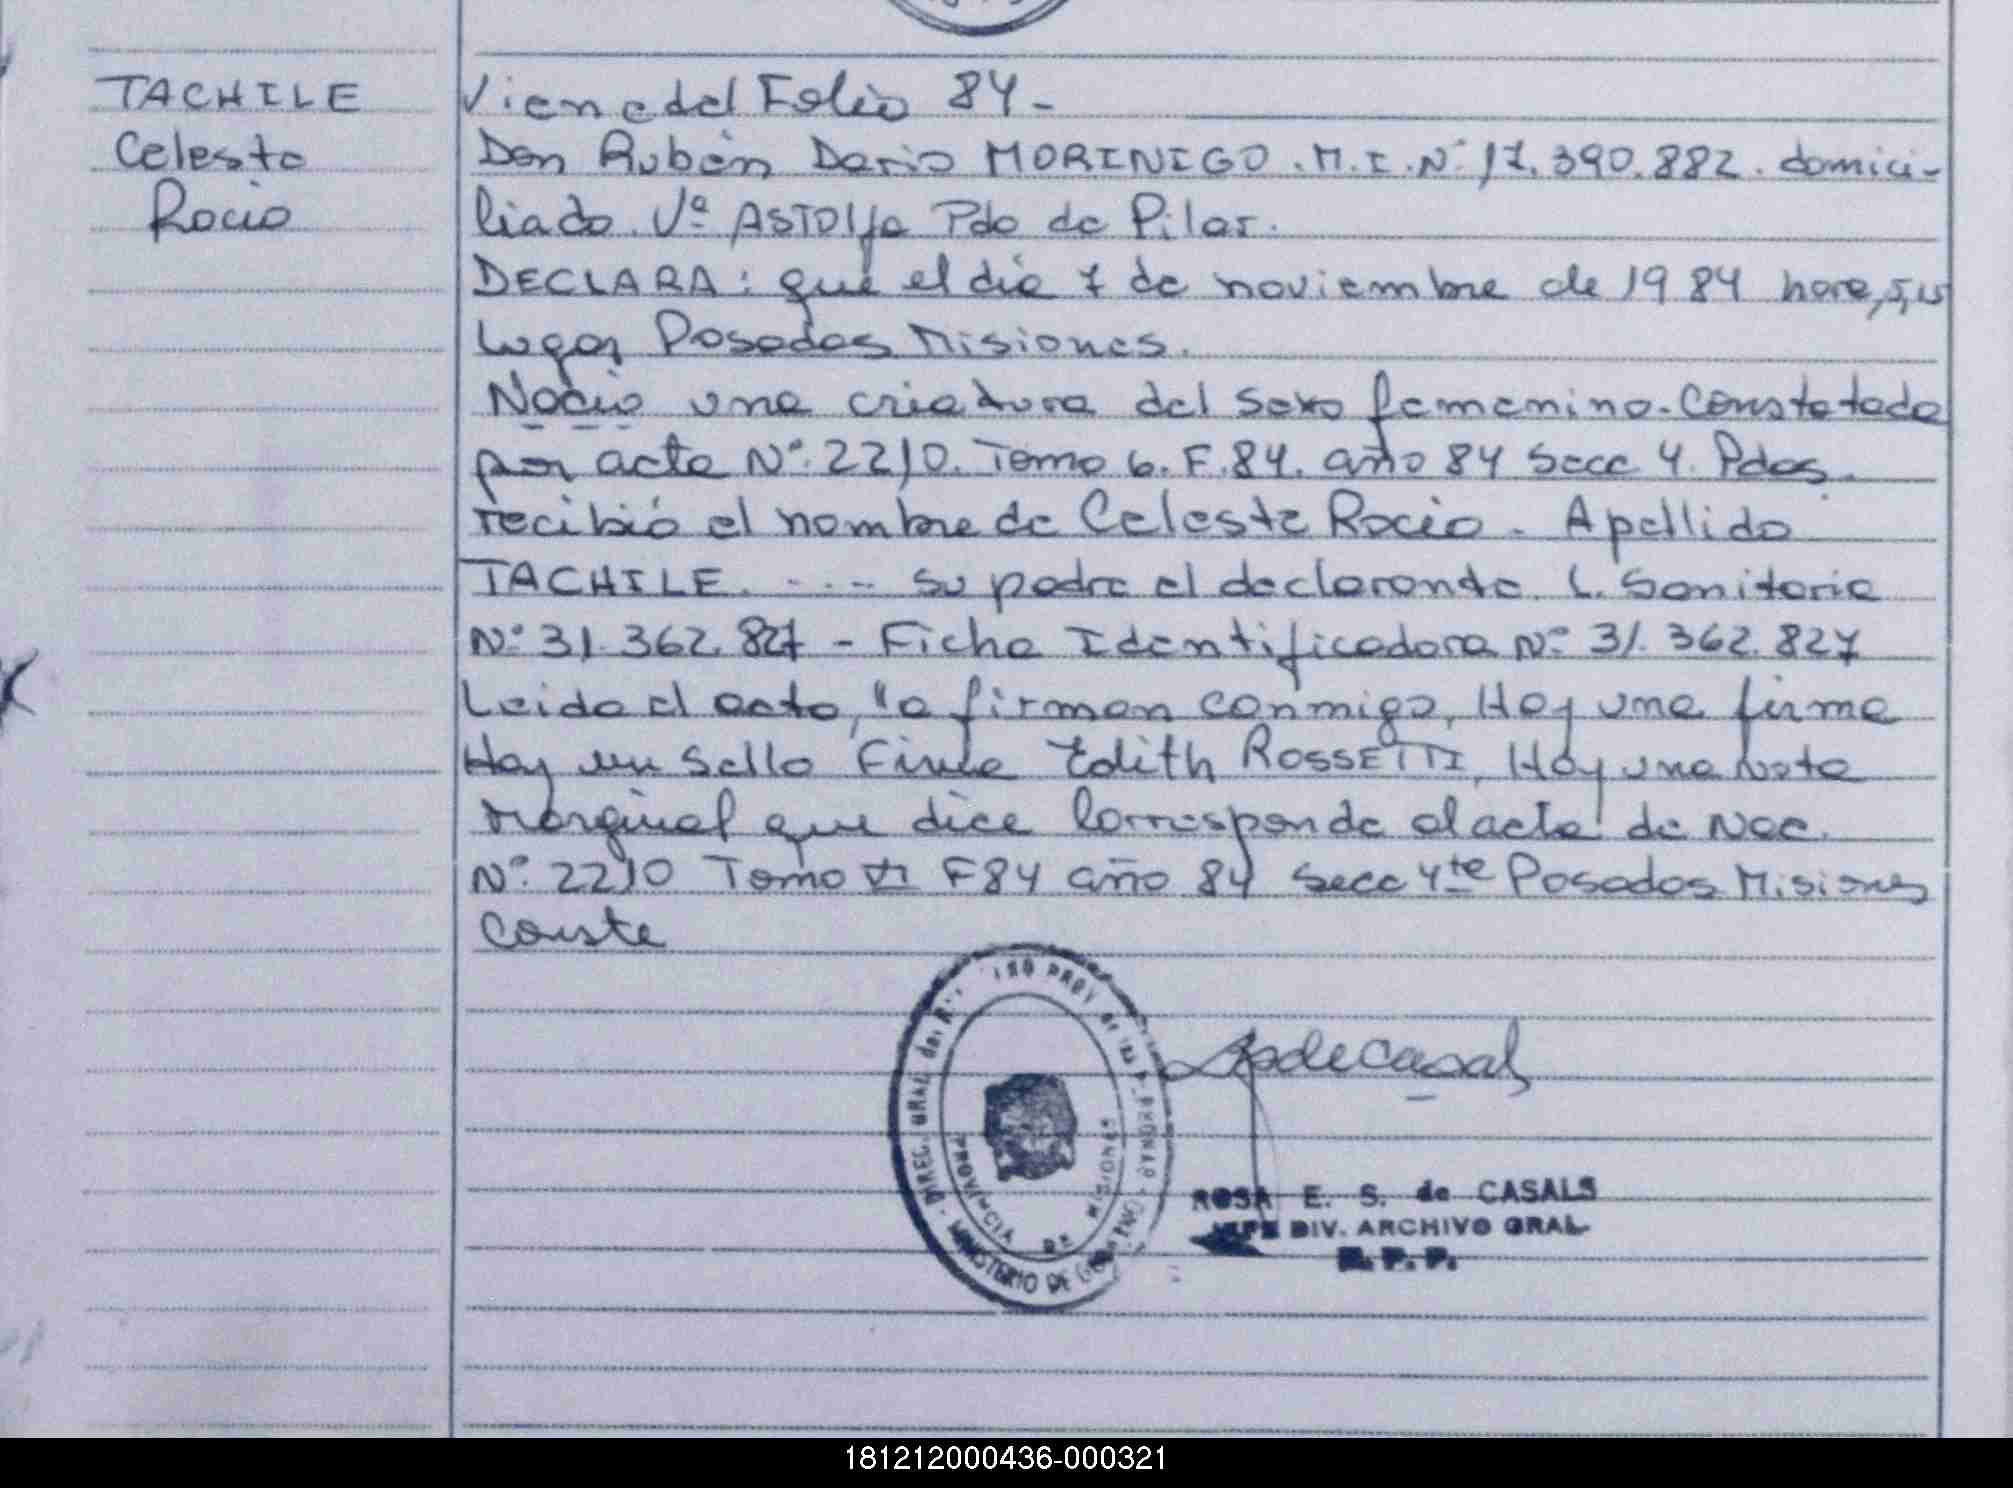 TACHILE
Celeste
Rocio
Viene del Folio 84-
Don Rubén Dario MORINIGO. M.I.Nº 17.390.882. domici-
liado. Vª ASTOLfa Pdo de Pilar.
DECLARA: que el dia 7 de noviembre de 1984 hora, 5,15
Lugar Posadas Misiones.
Nacio una criatura del sexo femenino. Constatada
por acta Nº. 2210. Tomo 6. F. 84. año 84 Secc 4. Pdas.
recibió el nombre de Celeste Rocio - Apellido
TACHILE. ---- su padre el declarante. L. Sanitaria
Nº 31.362.827 - Ficha Identificadora Nº 31.362.827
Leida el acta, la firman conmigo, Hay una firma
Hay un sello Firma Edith ROSSETTI, Hay una nota
marginal que dice Corresponde al acta de Nac.
Nº. 2210 Tomo VI F84 año 84 Secc 4ta Posadas Misiones
Conste
DIREC. GRAL del PROV. de las
MINISTERIO DE
PROVINCIA DE MISIONES
ROSA E. S. de CASALS
JEFE DIV. ARCHIVO GRAL
R. P. P.
181212000436-000321